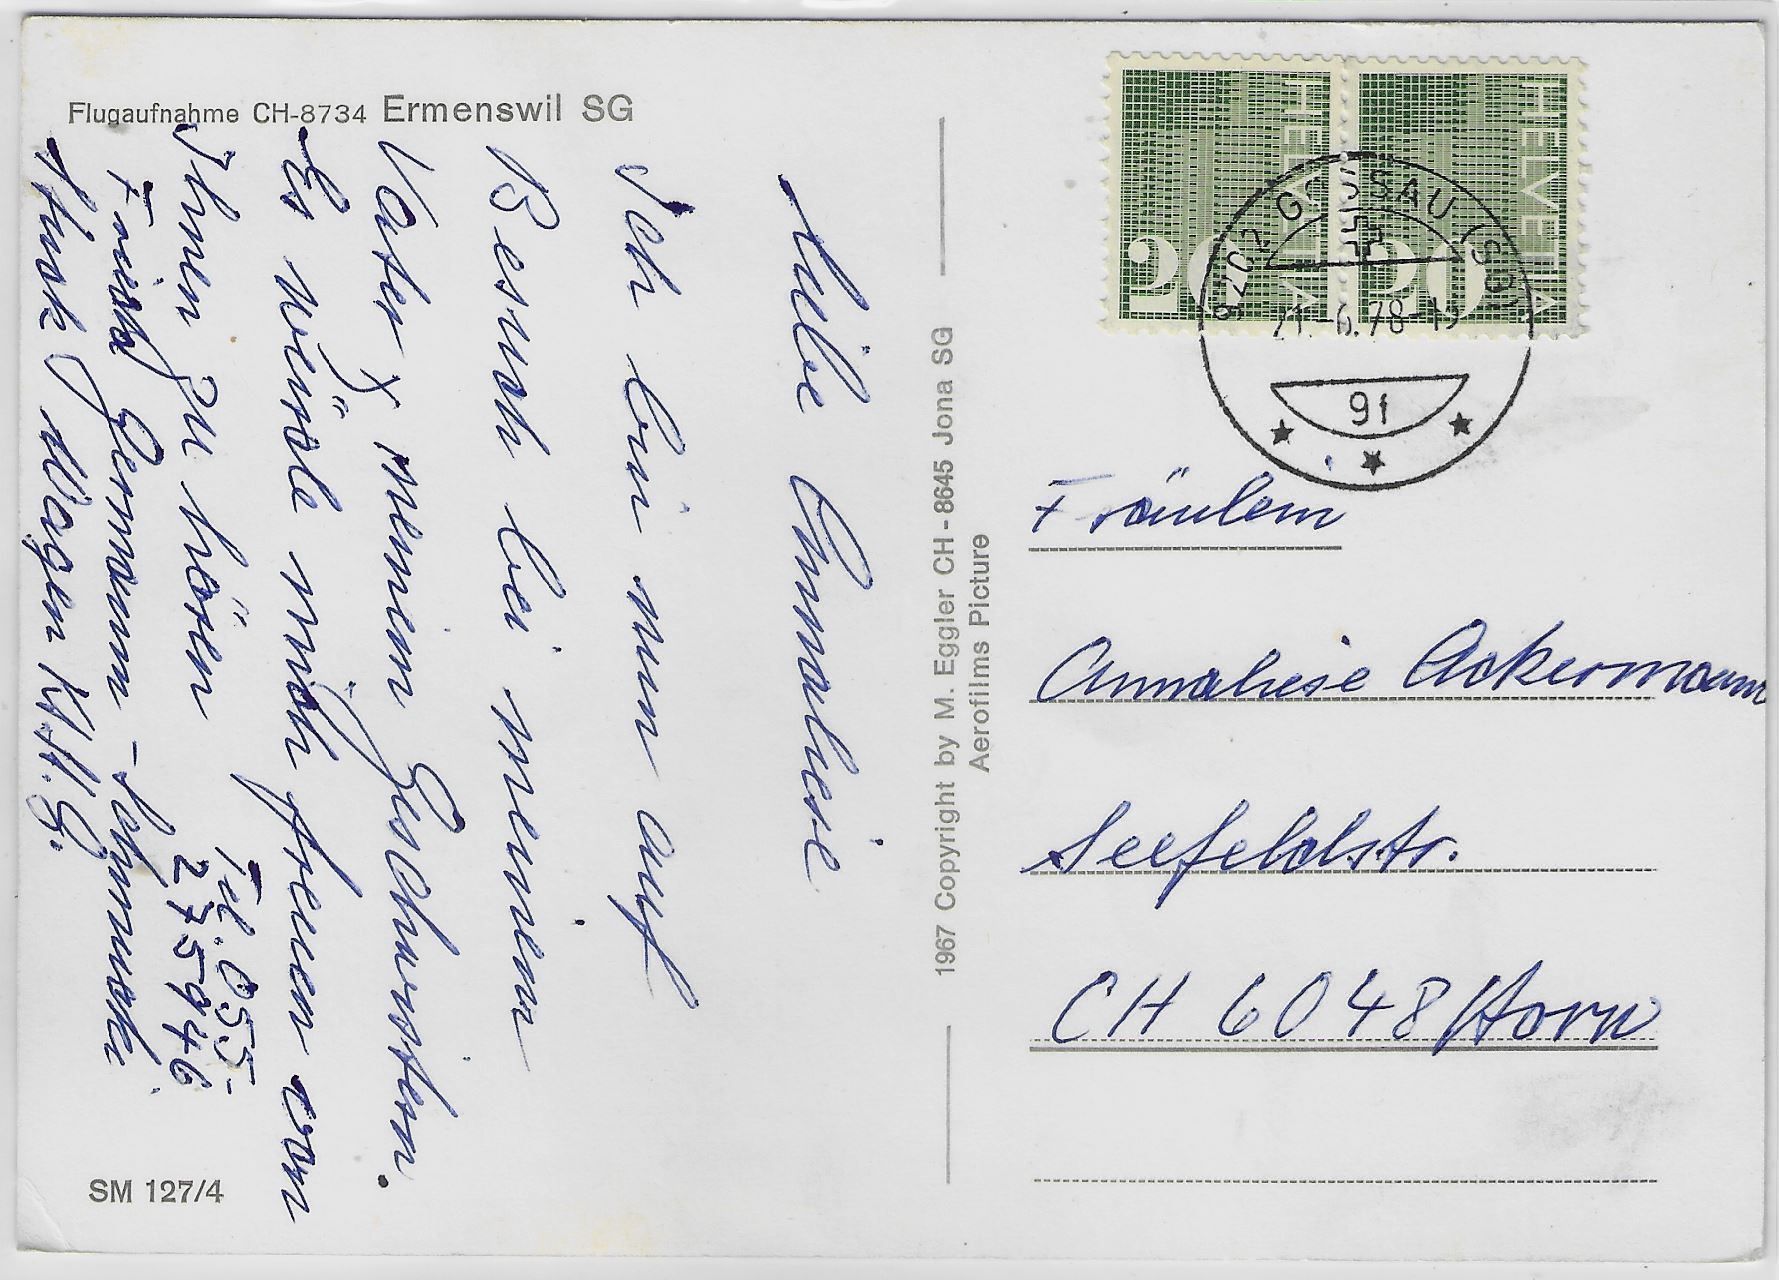 Flugaufnahme CH-8734 Ermenswil SG
Liebe Annaliese
Ich bin nun auf
Besuch bei meinem
Vater & meinen Geschwistern.
Es würde mich freuen von
Ihnen zu hören
Tel. 055-
275946
Frieda Germann-Schmucki
Huob Wagen K.H.G.
SM 127/4
1967 Copyright by M. Eggler CH-8645 Jona SG
Aerofilms Picture
HELVETIA
20
HELVETIA
20
9202 GOSSAU (SG)
21.-6.78-19
91
Fräulein
Annaliese Ackermann
Seefeldstr.
CH 6048 Horw